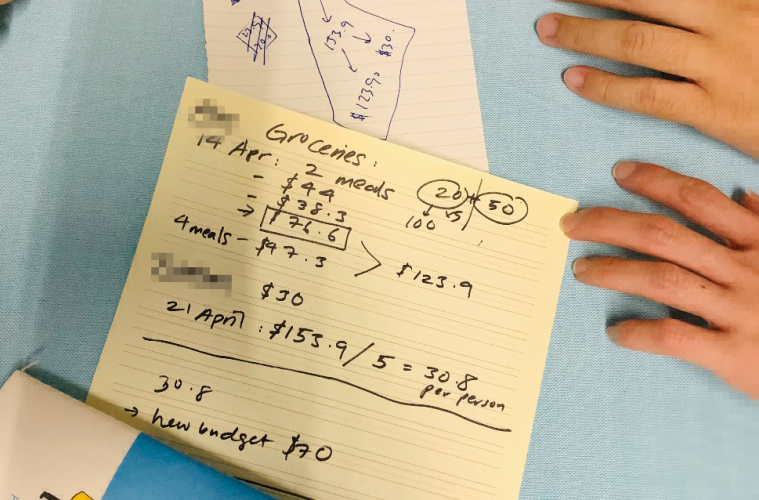 153.9
$30.
$123.90
Groceries:
14 Apr: 2 meals
- $44
- $38.3
→ $76.6
4 meals - $47.3
> $123.9
20 + 50
100 5
$30
21 April: $153.9 / 5 = 30.8
per person
30.8
→ new budget $70